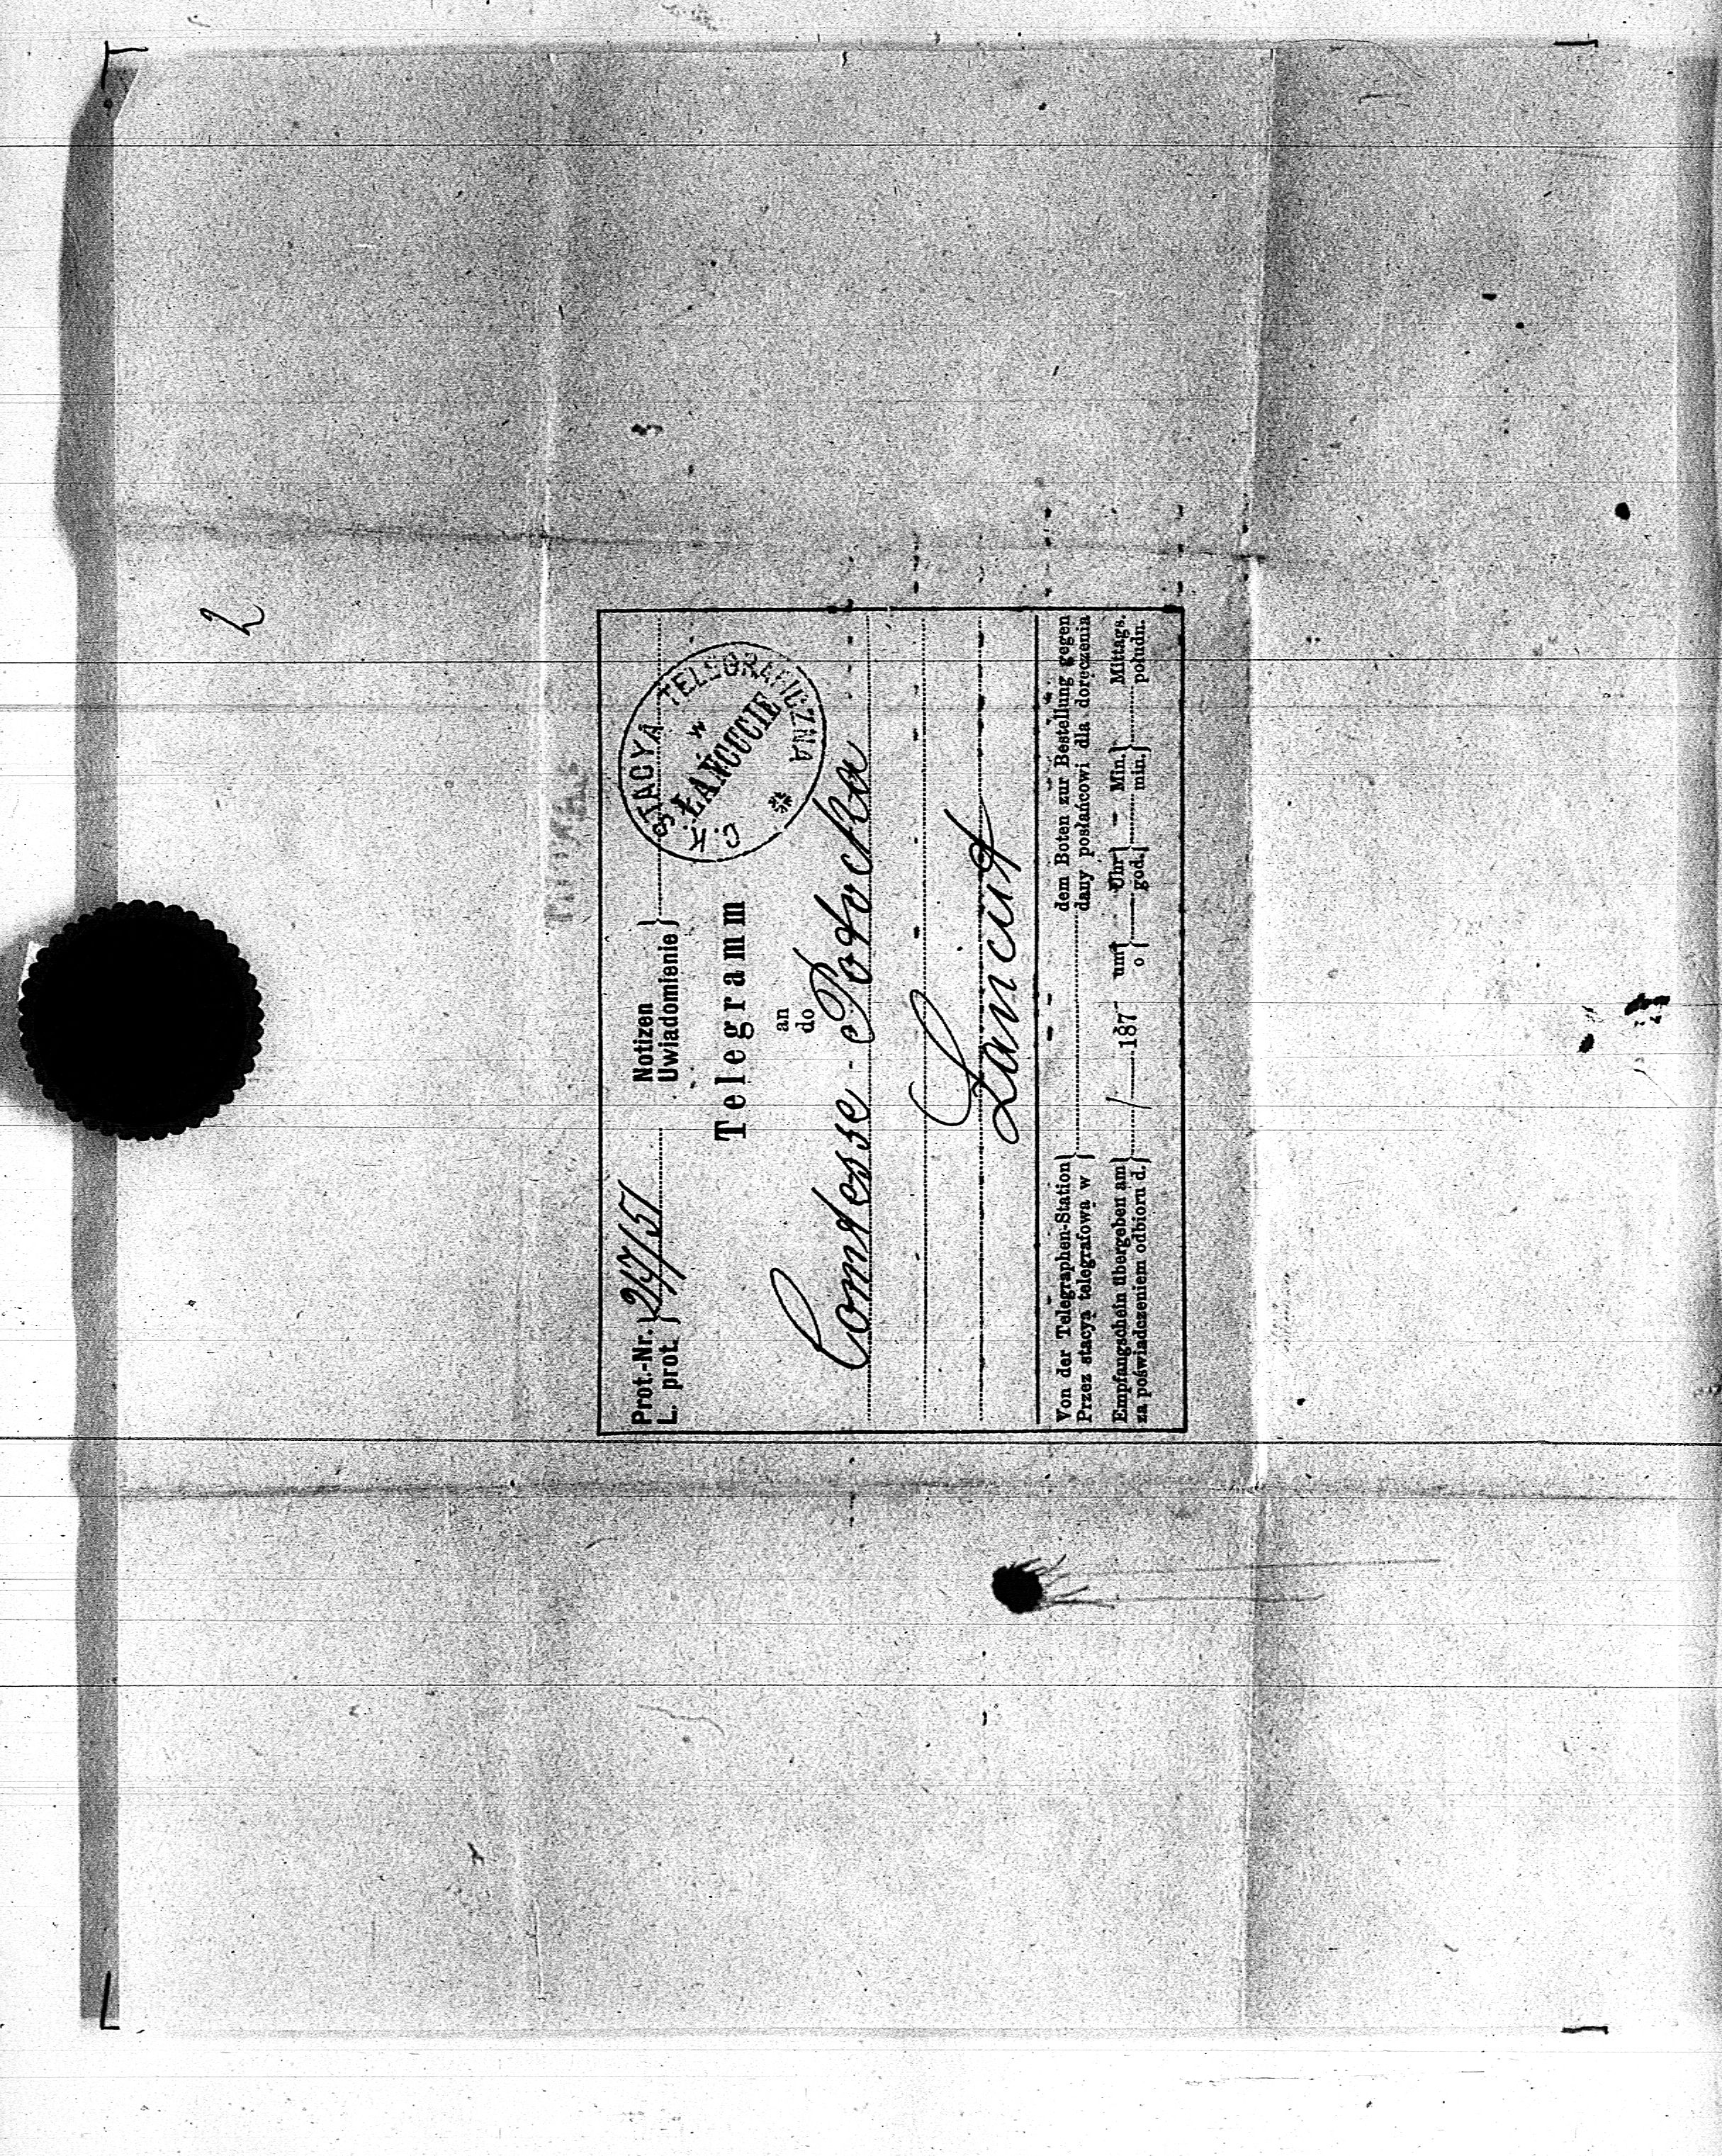 2
Prot.-Nr. } 217/51 Notizen
L. prot. } Uwiadomienie }
C. K. STACYA TELEGRAFICZNA
w
ŁAŃCUCIE
Telegramm
an
do
Comtesse Potocka
Lancut
Von der Telegraphen-Station } dem Boten zur Bestellung gegen
Przez stacyą telegrafową w } dany posłańcowi dla doręczenia
Empfangschein übergeben am } / 187 um { Uhr } Min. } Mittags.
za poświadczeniem odbioru d. } o { god. } min. } połudn.